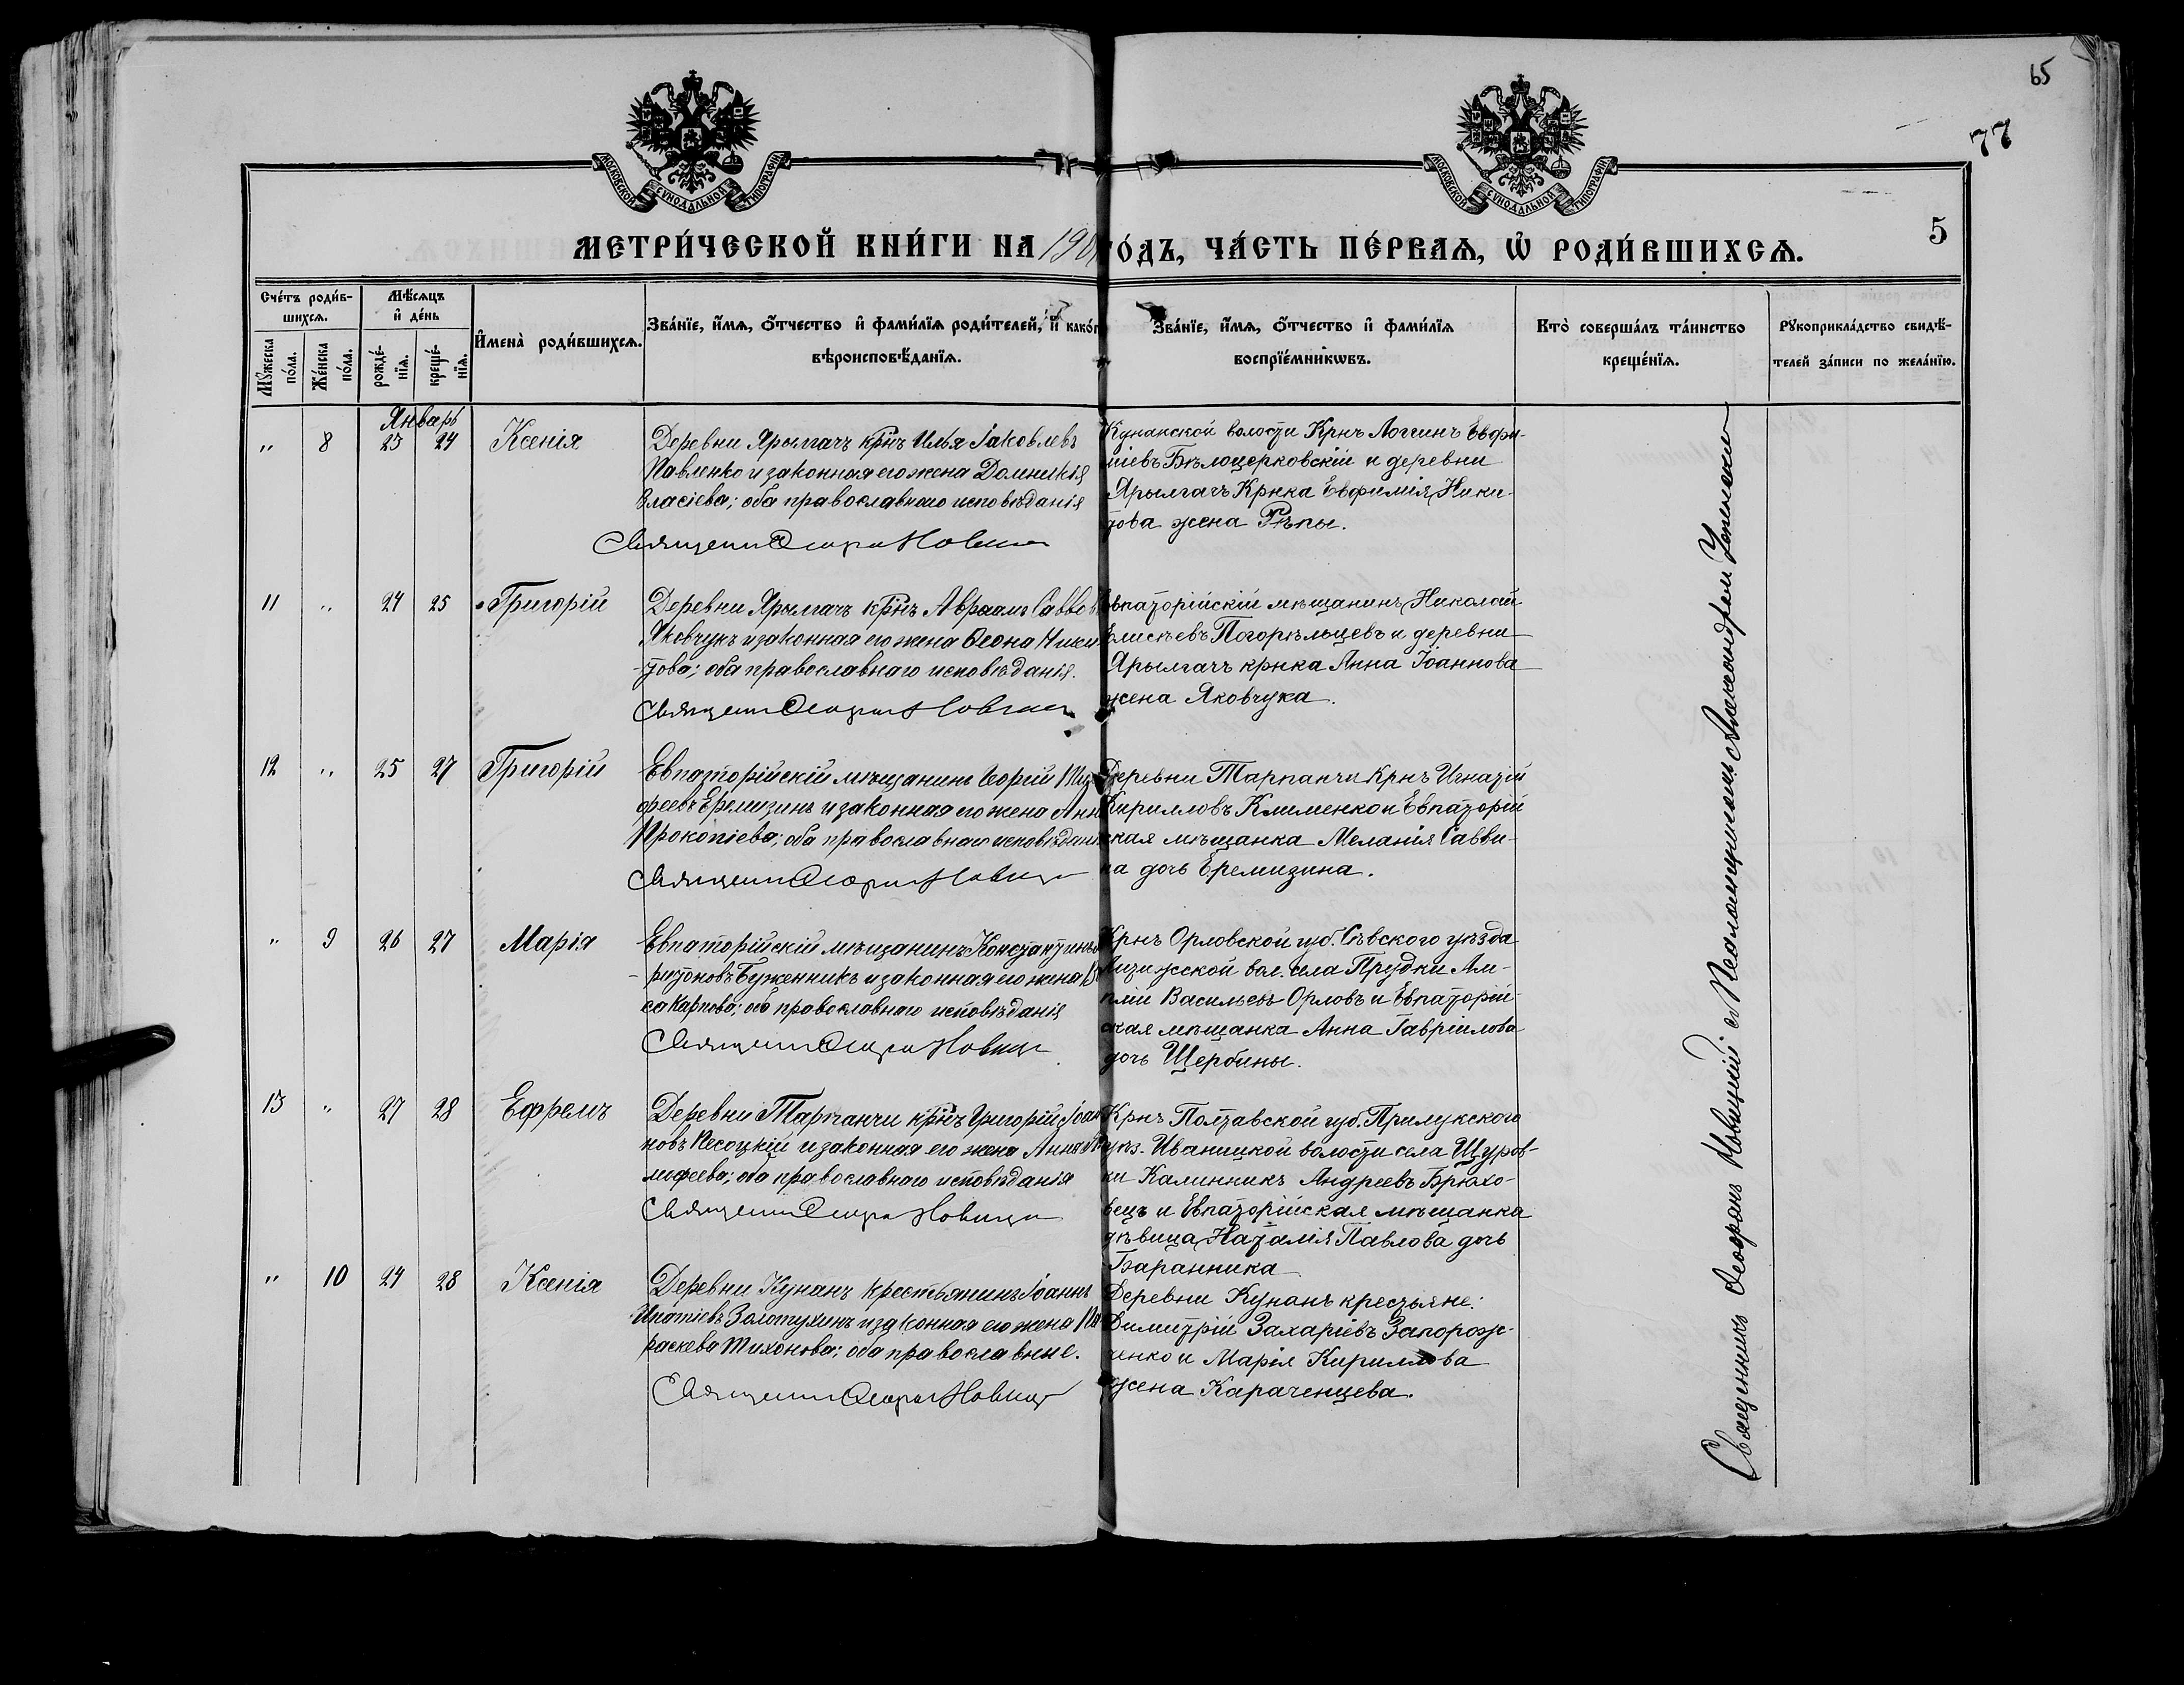 65
77
5
МОСКОВСКОЙ СѴНОДАЛЬНОЙ ТИПОГРАФІИ
МОСКОВСКОЙ СѴНОДАЛЬНОЙ ТИПОГРАФІИ
МЕТРИ́ЧЕСКОЙ КНИ́ГИ НА 190 го́дъ, ЧА́СТЬ ПЕ́РВАѦ, Ѡ҆ РОДИ́ВШИХСѦ.
Сче́тъ роди́в-
шихсѧ.
Мꙋжеска по́ла.
Же́нска по́ла.
Мѣ́сѧцъ
и҆ де́нь
рожде́-
нїѧ.
креще́-
нїѧ.
И҆мена̀ роди́вшихсѧ.
Зва́нїе, и҆́мѧ, ѻ҆́тчество и҆ фами́лїѧ роди́телей, и҆ како́г
вѣроисповѣ́данїѧ.
Зва́нїе, и҆́мѧ, ѻ҆́тчество и҆ фами́лїѧ
воспрїе́мникѡвъ.
Кто̀ соверша́лъ та́инство
креще́нїѧ.
Рꙋкоприкла́дство свидѣ́-
телей за́писи по жела́нїю.
Январь
" 8 23 24 Ксенія
Деревни Ярылгачъ крнъ Илья Іаковлевъ
Павленко и законная его жена Домникія
Власіева; оба православнаго исповѣданія
Кунанской волости Крнъ Логгинъ Евфи-
міевъ Бѣлоцерковскій и деревни
Ярылгачъ Крнка Евфимія Ники-
това жена Рѣпы.
11 " 24 25 Григорій
Деревни Ярылгачъ крнъ Авраамъ Саввовъ
Яковчукъ и законная его жена Ники-
-това; оба православнаго исповѣданія.
Евпаторійскій мѣщанинъ Николай
Елисѣевъ Погорѣльцевъ и деревни
Ярылгачъ крнка Анна Іоаннова
жена Яковчука.
12 " 25 27 Григорій
Евпаторійскій мѣщанинъ
офеевъ Еремизинъ и законная его жена Анн
Прокопіева; оба православнаго исповѣдані
Деревни Тарпанчи Крнъ Игнатій
Кирилловъ Клименко и Евпаторій
ская мѣщанка Меланія Савви-
на дочь Еремизина.
" 9 26 27 Марія
Евпаторійскій мѣщанинъ Константинъ
-ритоновъ Буженникъ и законная его жена
са Карпова; оба православнаго исповѣданія
Крнъ Орловской губ. Сѣвского уѣзда
вол. села Прудки Ам-
плій Васильевъ Орловъ и Евпаторій
ская мѣщанка Анна Гавріилова
дочь Щербины.
13 " 27 28 Ефремъ
Деревни Тарпанчи крнъ Григорій Іоан
новъ Песоцкій и законная его жена Анна Ти
мофеева; оба православнаго исповѣданія
Крнъ Полтавской губ. Прилукского
уѣз. Иваницкой волости села Щуров-
ки Калинникъ Андреевъ Брюхо-
вецъ и Евпаторійская мѣщанка
дѣвица Наталія Павлова дочь
Баранника
" 10 24 28 Ксенія
Деревни Кунанъ крестьянинъ Іоаннъ
Ипатіевъ Золотухинъ и законная его жена Па
раскева Тихонова; оба православные.
Деревни Кунанъ крестьяне:
Димитрій Захаріевъ Запорож-
ченко и Марія Кириллова
жена Караченцева.
Священникъ Новицкій съ Псаломщикомъ Александромъ